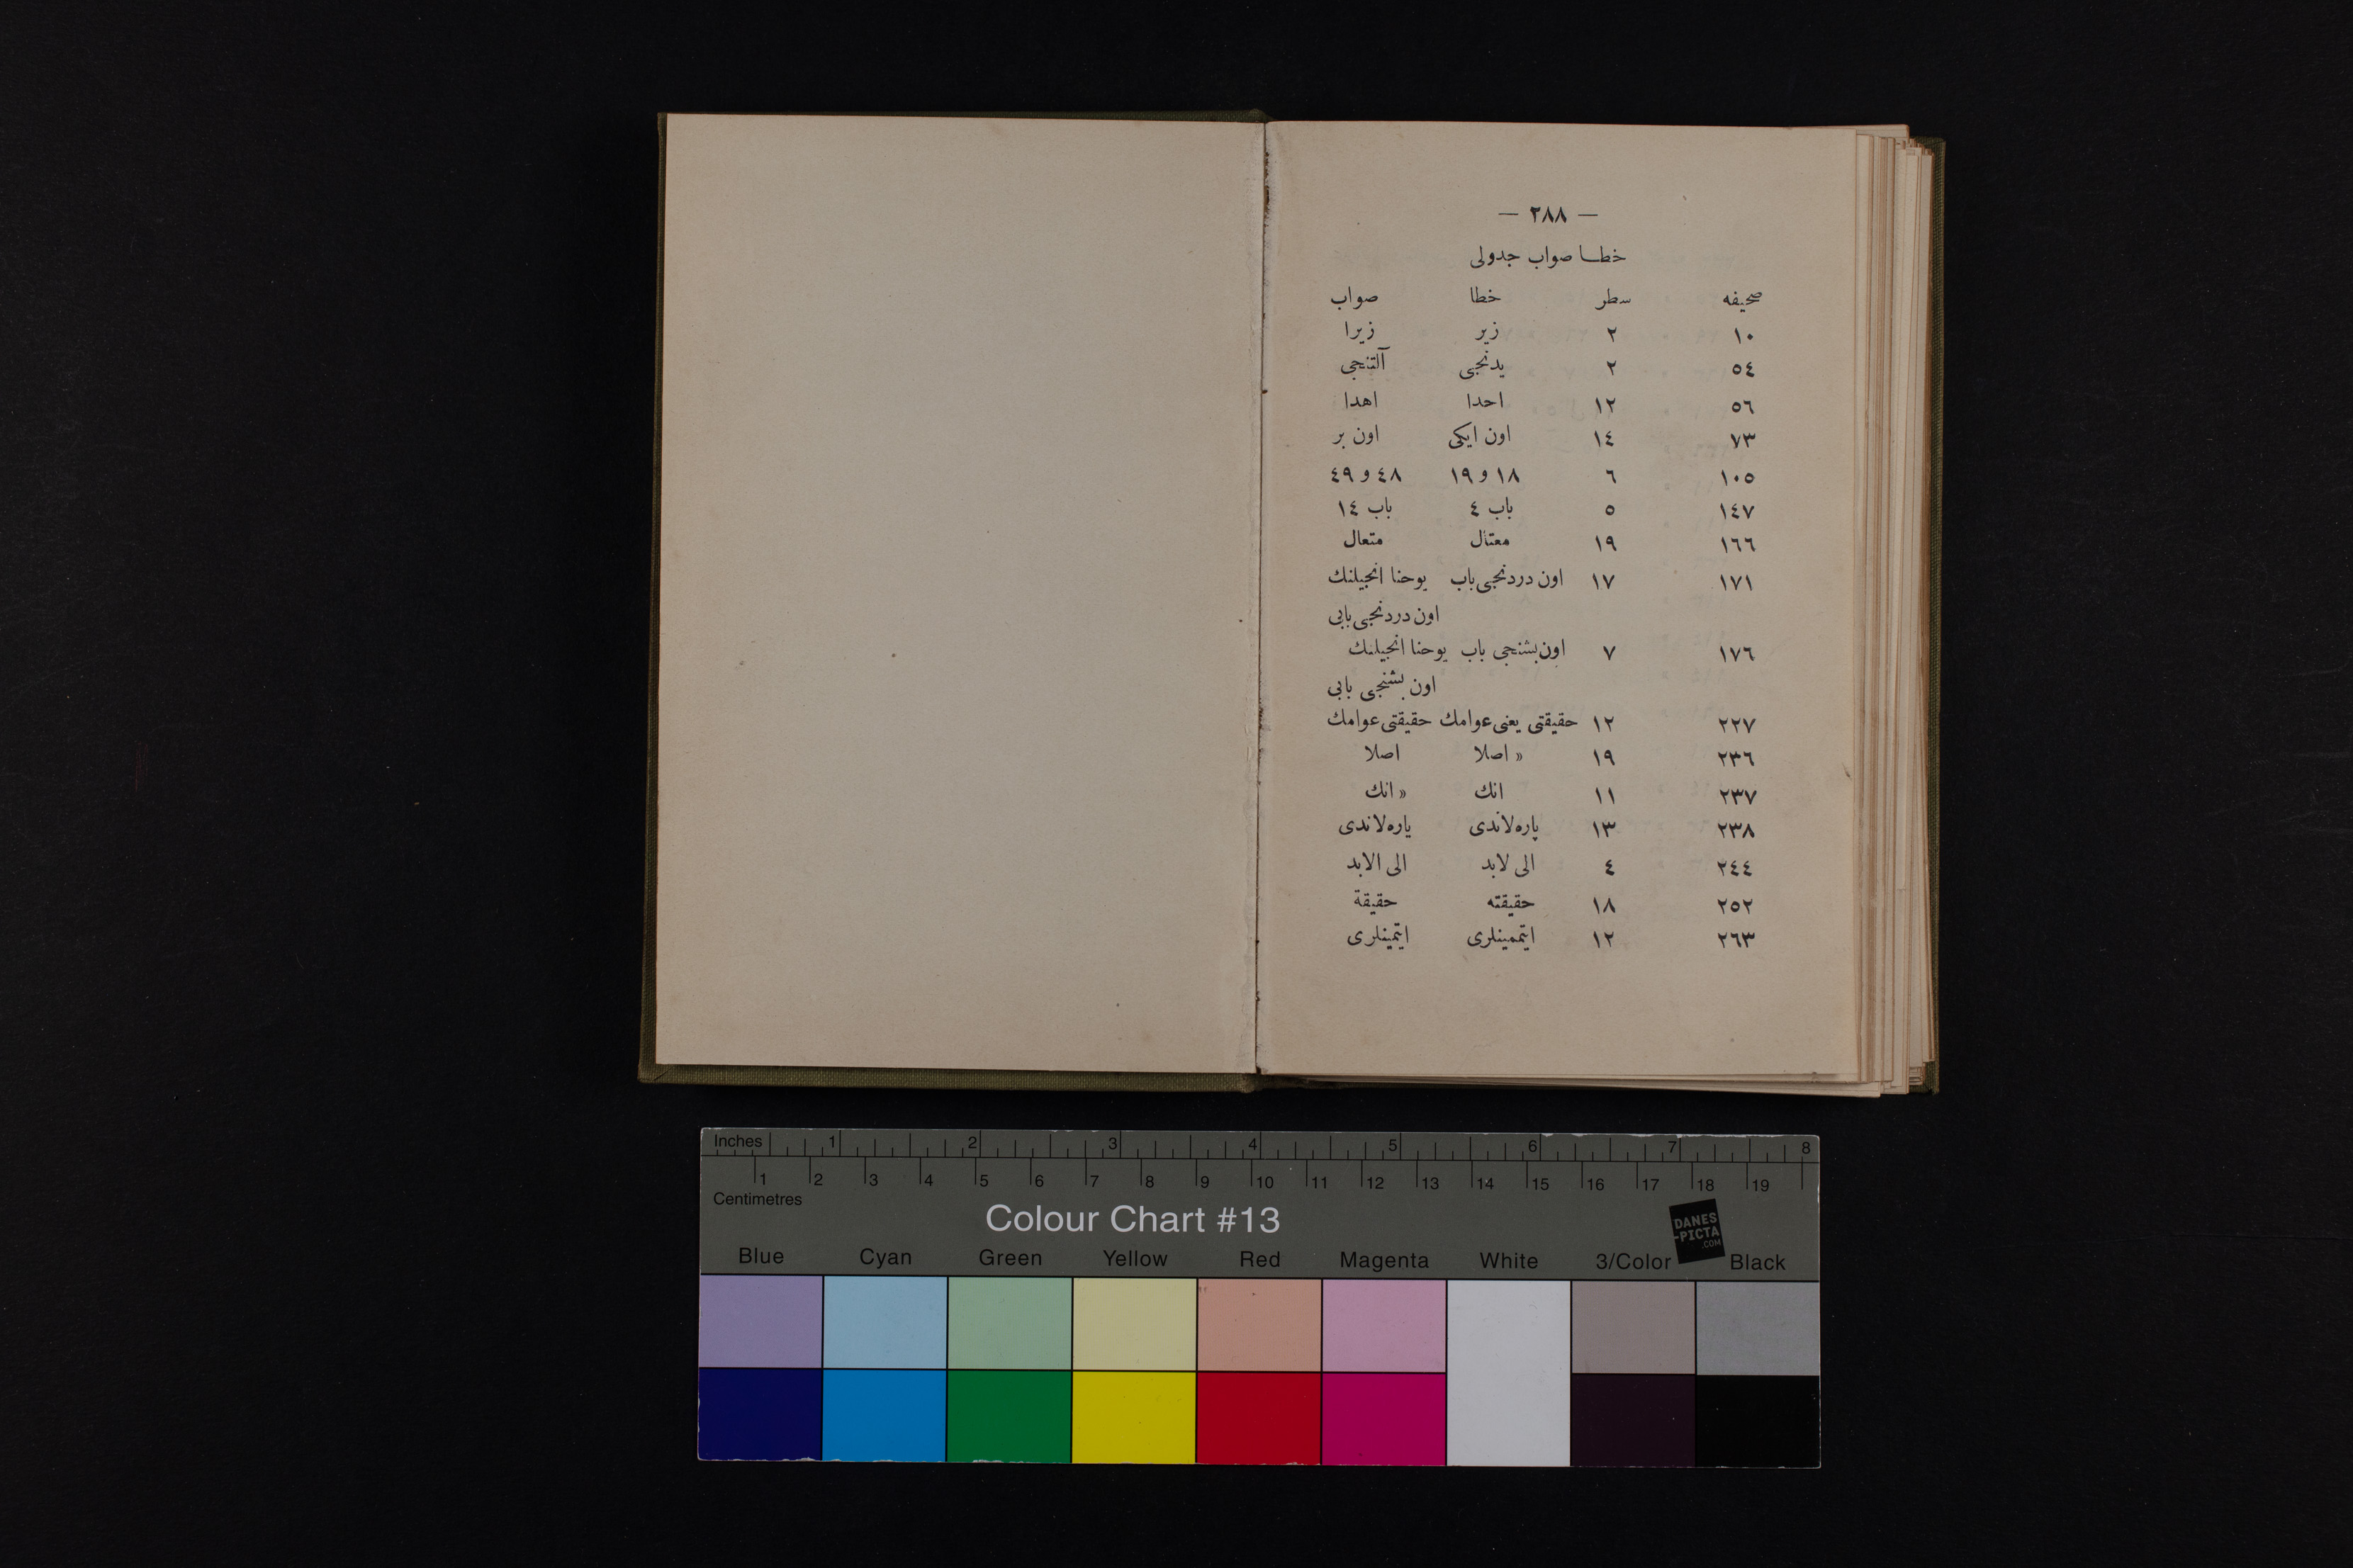 — ٢٨٨ —
خطا صواب جدولی
صحیفه سطر خطا صواب
١٠ ٢ زیر زیرا
٥٤ ٢ یدنجی آلتنجی
٥٦ ١٢ احدا اهدا
٧٣ ١٤ اون ایکی اون بر
١٠٥ ٦ ١٨ و ١٩ ٤٨ و ٤٩
١٤٧ ٥ باب ٤ باب ١٤
١٦٦ ١٩ معتال متعال
١٧١ ١٧ اون دردنجی باب یوحنا انجیلنك
اون دردنجی بابی
١٧٦ ٧ اون بشنجی باب یوحنا انجیلنك
اون بشنجی بابی
٢٢٧ ١٢ حقیقتی یعنی عوامك حقیقتی عوامك
٢٣٦ ١٩ « اصلا اصلا
٢٣٧ ١١ انك « انك
٢٣٨ ١٣ پاره‌لاندی یاره‌لاندی
٢٤٤ ٤ الی لابد الی الابد
٢٥٢ ١٨ حقیقته حقیقة
٢٦٣ ١٢ ایتممینلری ایتمینلری
Inches 1 2 3 4 5 6 7 8
1 2 3 4 5 6 7 8 9 10 11 12 13 14 15 16 17 18 19
Centimetres
Colour Chart #13
DANES
-PICTA
.COM
Blue Cyan Green Yellow Red Magenta White 3/Color Black